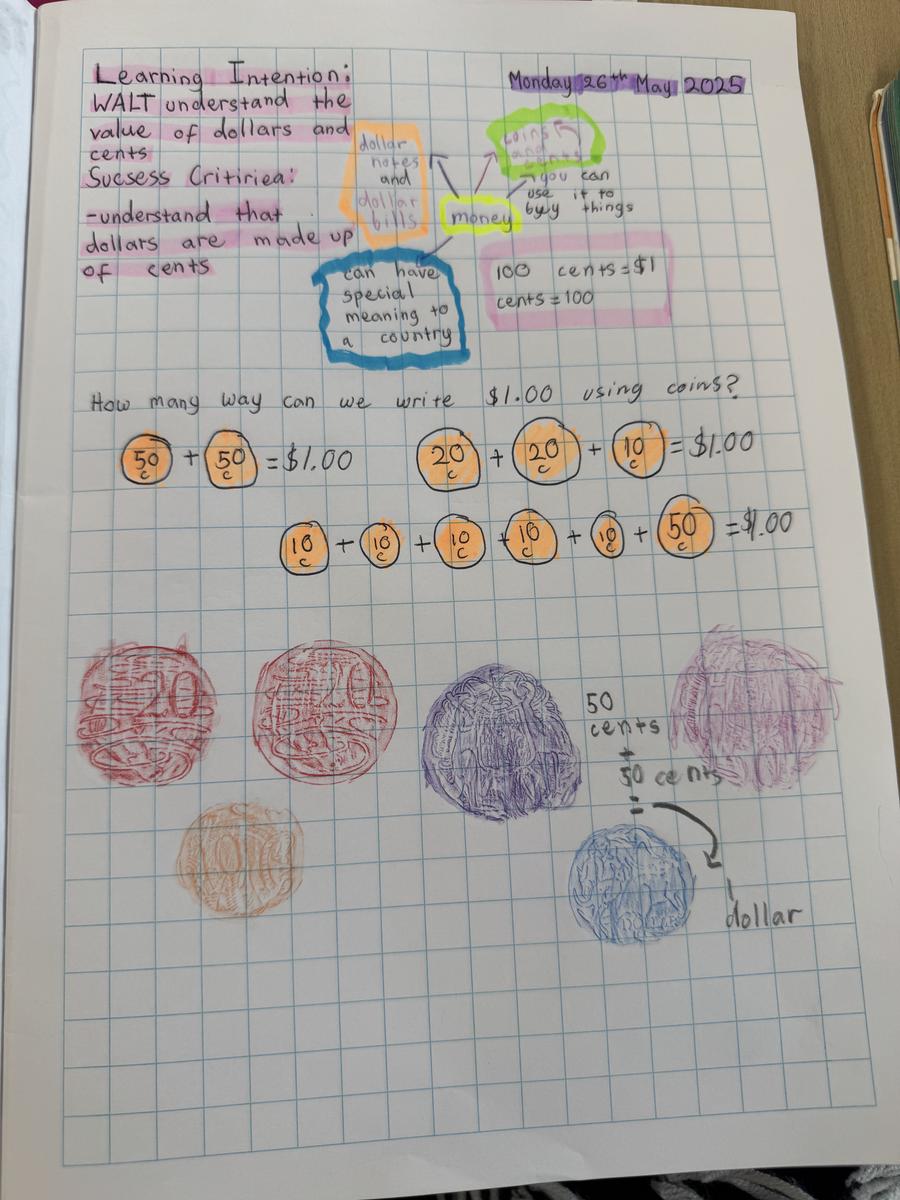 Learning Intention:
WALT understand the
value of dollars and
cents
Sucsess Critiriea:
-understand that
dollars are made up
of cents
Monday 26th May 2025
dollar
notes
and
dollar
bills
coins
and
cents
money
you can
use it to
byy things
can have
special
meaning to
a country
100 cents = $1
cents = 100
How many way can we write $1.00 using coins?
50c + 50c = $1.00
20c + 20c + 10c = $1.00
10c + 10c + 10c + 10c + 10c + 50c = $1.00
20
20
50
cents
+
50 cents
=
10
1
dollar